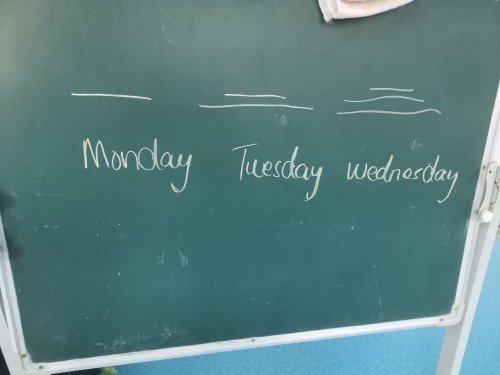 一 二 三
Monday Tuesday Wednesday